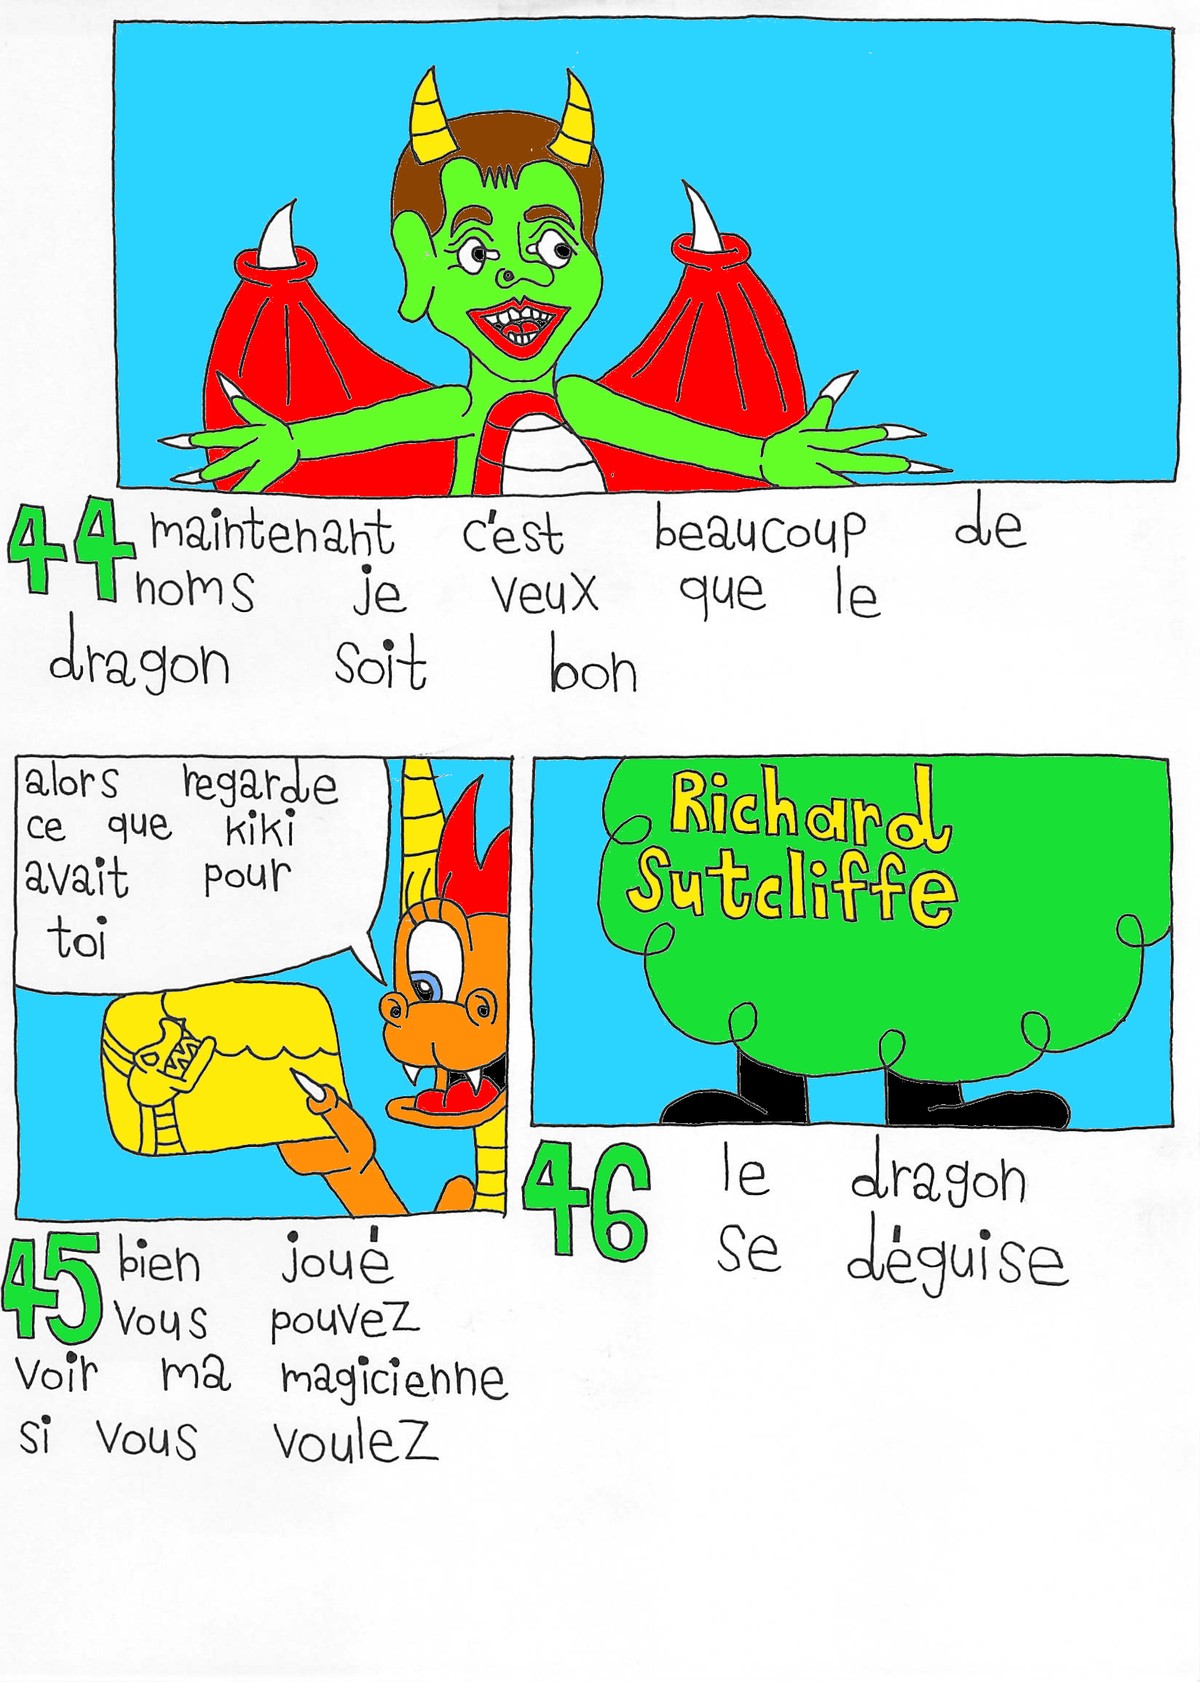 44 maintenant c'est beaucoup de
noms je veux que le
dragon soit bon
alors regarde
ce que kiki
avait pour
toi
45 bien joué
vous pouvez
voir ma magicienne
si vous voulez
Richard
Sutcliffe
46 le dragon
se déguise